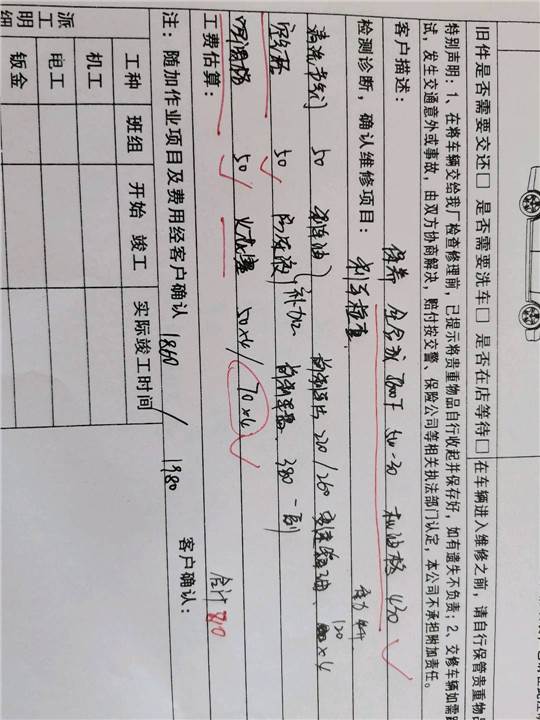 旧件是否需要交还□ 是否需要洗车□ 是否在店等待□ 在车辆进入维修之前，请自行保管贵重物
特别声明：1、在将车辆交给我厂检查修理前，已提示将贵重物品自行收起并保存好，如有遗失不负责；2、交修车辆如需
试，发生交通意外或事故，由双方协商解决，赔付按交警、保险公司等相关执法部门认定，本公司不承担附加责任。
客户描述： 保养 全合成 5W-30 机油格 430
检测诊断，确认维修项目： 刹车检查
清洗节气门 50 刹车油 220/260 120
空气格 50 防冻液 补加 380 一副
空调格 50 火花塞 50×4/ 70×4
工费估算： 合计810
注：随加作业项目及费用经客户确认 1860 / 1980 客户确认：
派工明细
工种 班组 开始 竣工 实际竣工时间
机工
电工
钣金